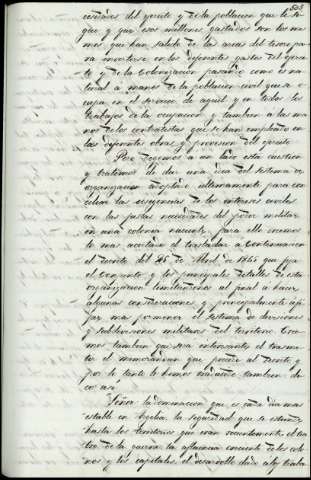 cesidades del ejercito y de la poblacion que le si-
gue y que esos millones gastados son los mis-
mos que han salido de las arcas del tesoro pa-
ra invertirse en los diferentes gastos del ejerci-
to y de la Colonizacion pasando como es na-
tural a manos de la poblacion civil que se o-
cupa en el servicio de aquel y en todos los
trabajos de la ocupacion y tambien a las ma-
nos de los contratistas que se han empleado en
las diferentes obras y provision del ejercito
Pero dejemos a un lado esta cuestion
y tratemos de dar una idea del sistema de
organizacion adoptado ultimamente para con-
ciliar las exigencias de los intereses civiles
con las justas necesidades del poder militar
en una colonia naciente, para ello creemos
lo mas acertado el trasladar a continuacion
el Decreto del 15 de Abril de 1845 que fija
el conjunto y los principales detalles de esta
organizacion limitandonos al final a hacer
algunas consideraciones y principalmente a fi-
jar mas por menor el sistema de divisiones
y subdivisiones militares del territorio. Cree-
mos tambien que sera interesante el trasmi-
tir el memorandum que precede al Decreto y
por lo tanto le hemos traducido tambien di-
ce asi
Señor la dominacion que es cada dia mas
estable en Argelia, la seguridad que se estiende
hasta los territorios que eran recientemente el tea-
tro de la guerra la afluencia creciente de los colo-
nos y los capitales, el desarrollo dado a los traba-